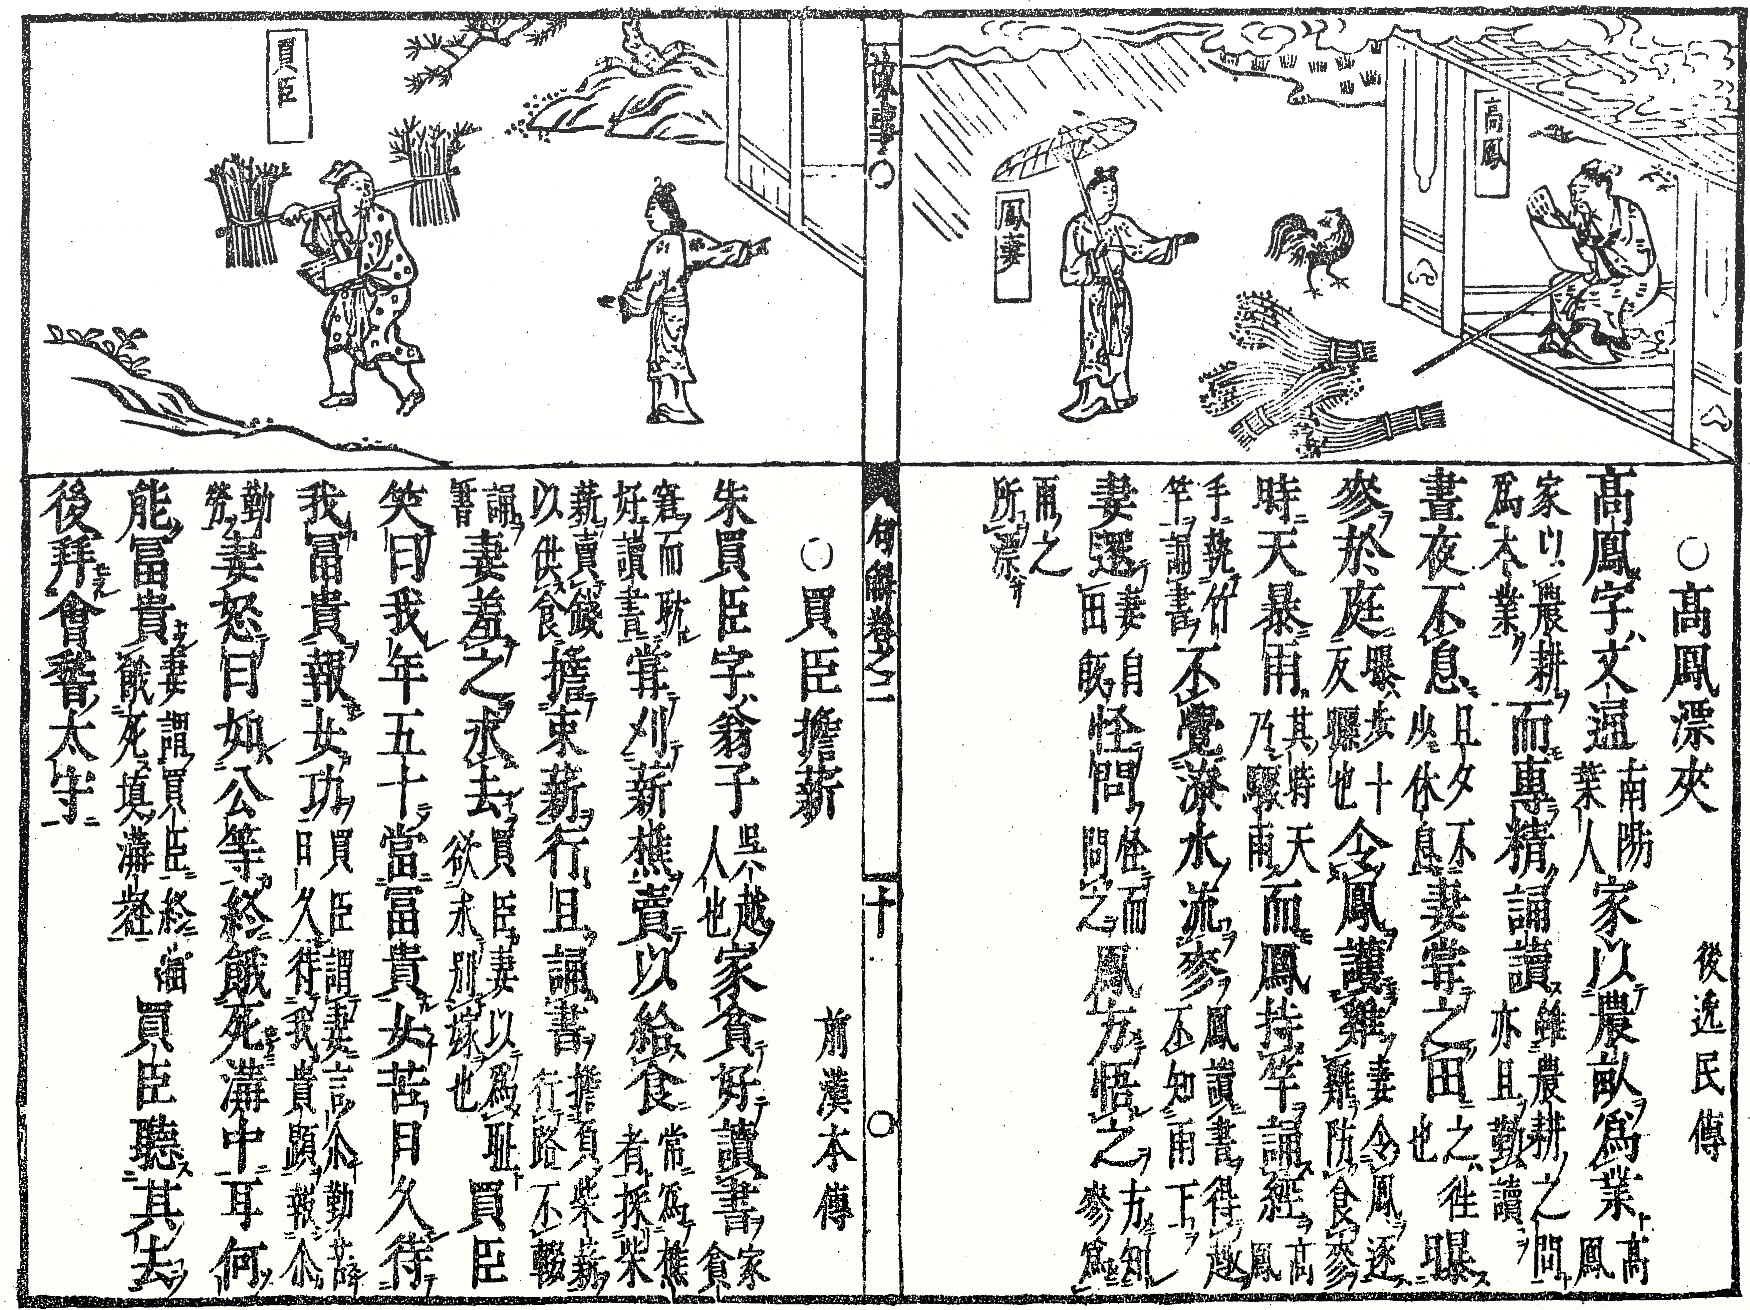 高鳳
鳳妻
○高鳳漂麥 後逸民傳
高鳳字文通南陽葉人家以農畝爲業高鳳
家以農耕爲大業而專精誦讀雖農耕之間亦且勤讀
晝夜不息且夕不以休息妻嘗之田之徃也曝
麥於庭曝步十反曬也令鳳護雞妻令鳳逐雞防食麥
時天暴雨其時天乃驟雨而鳳持竿誦經高鳳
手執竹竿誦書不覺潦水流麥鳳讀書得趣不知雨下
妻還妻自田皈怪問怪而問之鳳方悟之方知麥爲
雨之所漂
故事○
句解卷之二
十
買臣
○買臣擔薪 前漢本傳
朱買臣字翁子吳越人也家貧好讀書家貧
窘而耽好讀書嘗刈薪樵賣以給食常爲樵者採柴
薪賣錢以供食擔束薪行且誦書擔負柴薪行路不輟
誦書妻羞之求去買臣妻以爲耻欲求別嫁也買臣
笑曰我年五十當冨貴女苦日久待
我冨貴報女功買臣謂妻言尒勤苦日久待我貴顯報尒
勤勞妻怒曰如公等終餓死溝中耳何
能冨貴妻謂買臣終餓死塡溝壑買臣聽其去
後拜會稽太守